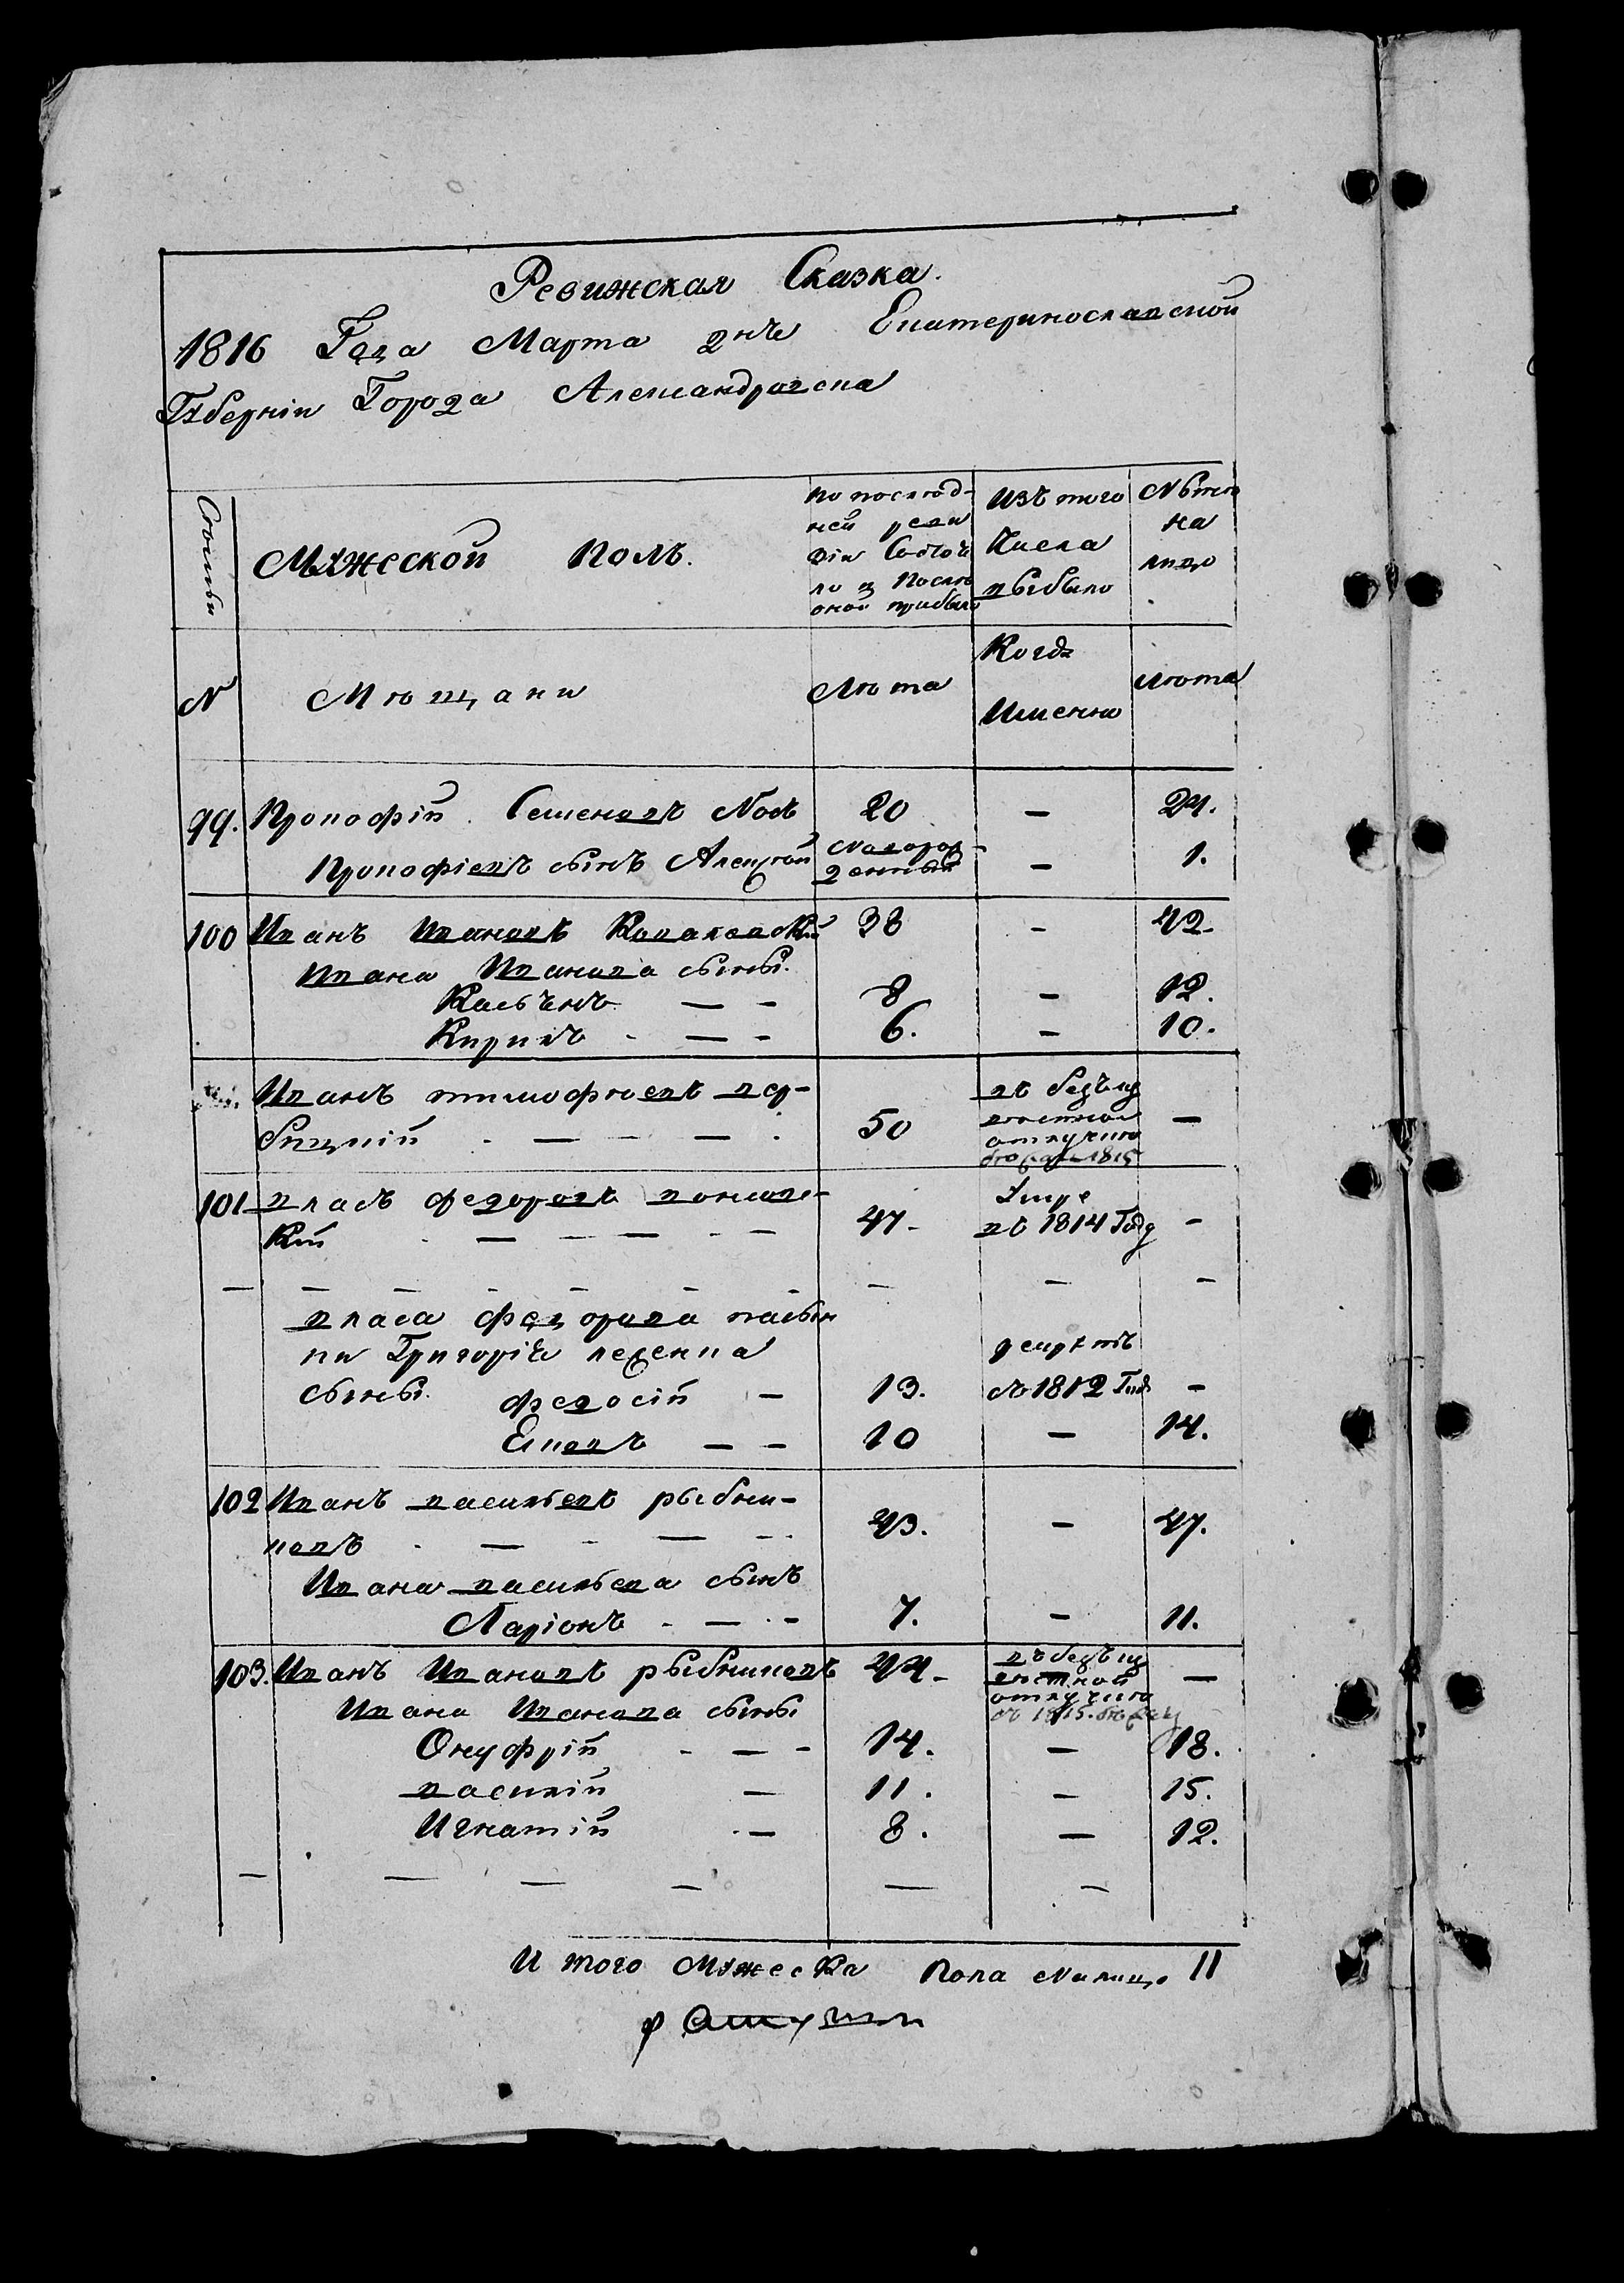 Ревижская Сказка.
1816 Года Марта дня Екатеринославской
Губерніи Города Александровска
Семьи
Мужеской полъ.
по послѣд-
ней реви
зіи Состоя
ло и послѣ
оной прибыло
изъ того
Числа
выбыло
Нынѣ
на
лицо
N
Мѣщани
Лѣта
Когда
Именно
Лѣта
99. Прокофій Семеновъ Носъ 20 — 24.
Прокофіевъ сынъ Алексѣй новорож-
денный — 1.
100 Иванъ Ивановъ 38 - 42.
Ивана Иванова сыны.
Касьянъ — - 8 - 12.
Кирилъ - — - 6. - 10.
Иванъ тимофѣевъ вер-
бицкій - — - — - 50 въ безъиз
вѣстной
отлучкѣ
1815 —
101 власъ федоровъ
Кій - — - — - — 47- Умре
въ 1814 Году -
— — — — — — — — — —
власа федорова пасын
ки Григорія
сыны. федосій — 13. съ 1812 Году -
— - 10 — 14.
102 Иванъ васильевъ рыбни-
ковъ - — - — - - 43. - 47.
Ивана васильева сынъ
Ларіонъ - — - - 7. - 11.
103. Иванъ Ивановъ рыбниковъ 44- въ безъиз
вѣстной
отлучкѣ
съ 1815. —
Ивана Иванова сыны
Онуфрій - — - 14. — 18.
василій — 11. - 15.
Игнатій - — 8. — 12.
— — — — — -
И того Мужеска Пола Налицо 11